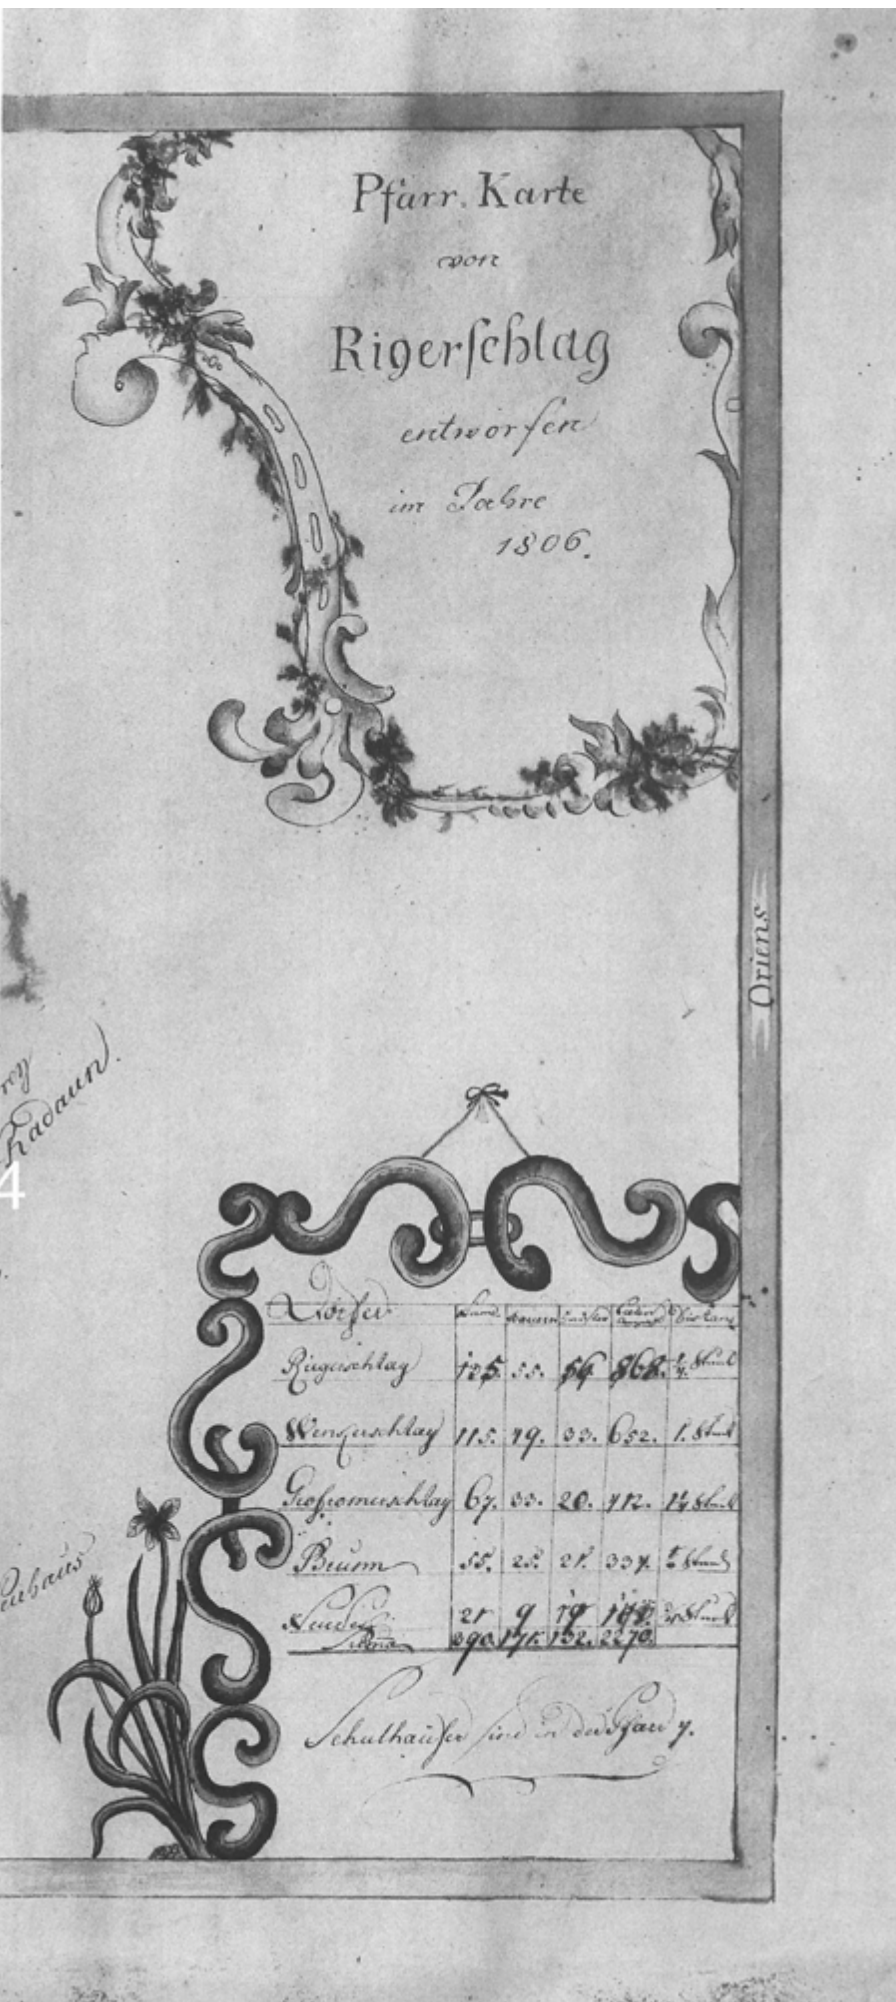 Pfarr. Karte
von
Rigerschlag
entworfen
im Jahre
1806.
Oriens
Radaun.
4
Dörfer
Riegerschlag 125. 55. 54 868. Stund
Wenkerschlag 115. 49. 33. 652. 1. Stund
Grosromerschlag 67. 33. 20. 412. Stund
Brunn 55. 25. 21. 337. Stund
21 9 Stund
Suma 390. 171. 132. 2270.
Neuhaus
Schulhäuser sind in der Pfarr 4.